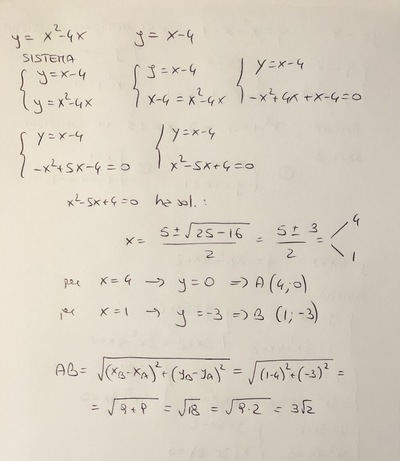 y = x²-4x    y = x-4
SISTEMA
{ y = x-4    { y = x-4    { y = x-4
{ y = x²-4x    { x-4 = x²-4x    { -x²+4x+x-4=0
{ y = x-4    { y = x-4
{ -x²+5x-4=0    { x²-5x+4=0
x²-5x+4=0 ha sol.:
x = (5±√(25-16))/2 = (5±3)/2 = 4
1
per x=4 → y=0 => A(4;0)
per x=1 → y=-3 => B (1;-3)
AB = √((x_B-x_A)²+(y_B-y_A)²) = √((1-4)²+(-3)²) =
= √(9+9) = √18 = √(9·2) = 3√2